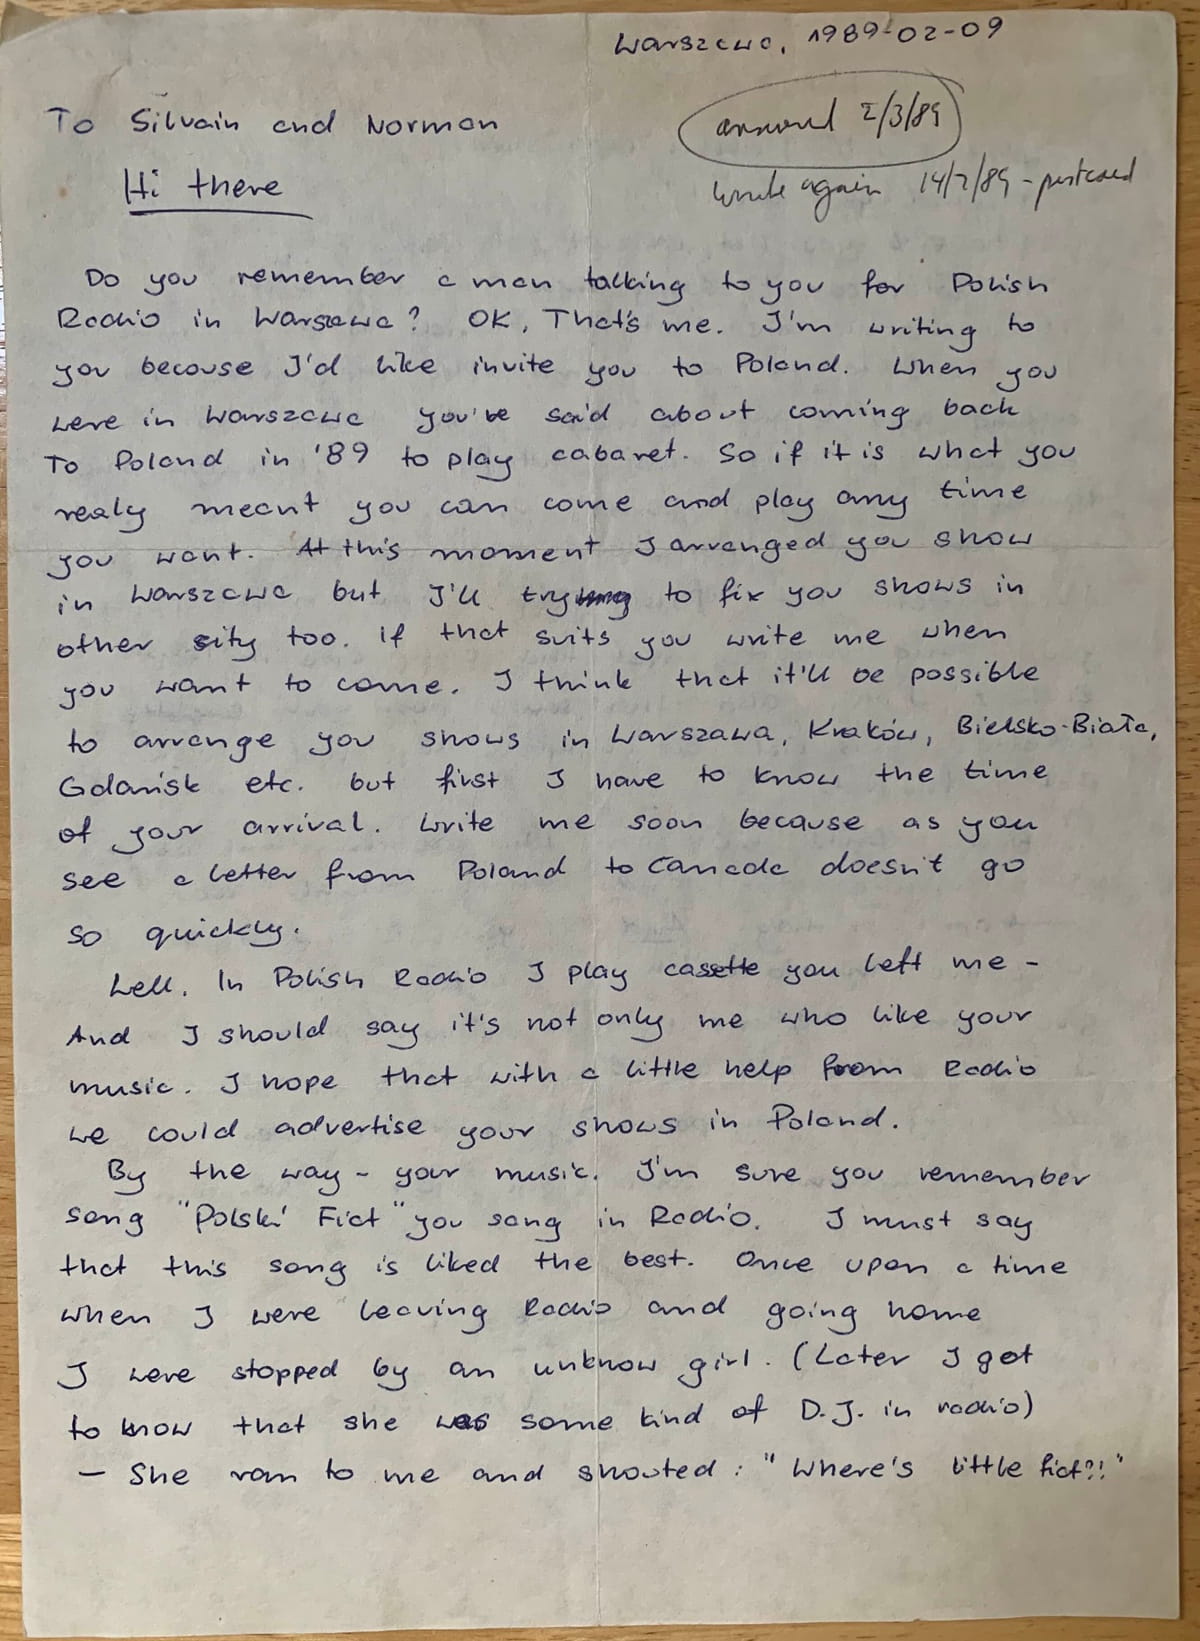 Warszawa, 1989-02-09
To Silvain and Norman
answered 2/3/89
Hi there
write again 14/7/89 - postcard
Do you remember a man talking to you for Polish
Radio in Warszawa? OK, That's me. I'm writing to
you because I'd like invite you to Poland. When you
were in Warszawa you've said about coming back
To Poland in '89 to play cabaret. So if it is what you
realy meant you can come and play any time
you want. At this moment I arranged you show
in Warszawa but I'll try to fix you shows in
other city too. If that suits you write me when
you want to come. I think that it'll be possible
to arrange you shows in Warszawa, Kraków, Bielsko-Biała,
Gdańsk etc. but first I have to know the time
of your arrival. Write me soon because as you
see a letter from Poland to Canada doesn't go
so quickly.
Well. In Polish Radio I play casette you left me -
And I should say it's not only me who like your
music. I hope that with a little help from Radio
we could advertise your shows in Poland.
By the way - your music. I'm sure you remember
song "Polski Fiat" you sang in Radio. I must say
that this song is liked the best. Once upon a time
when I were leaving Radio and going home
I were stopped by an unknow girl. (Later I got
to know that she was some kind of D.J. in radio)
- She ran to me and shouted: "Where's little fiat?!"